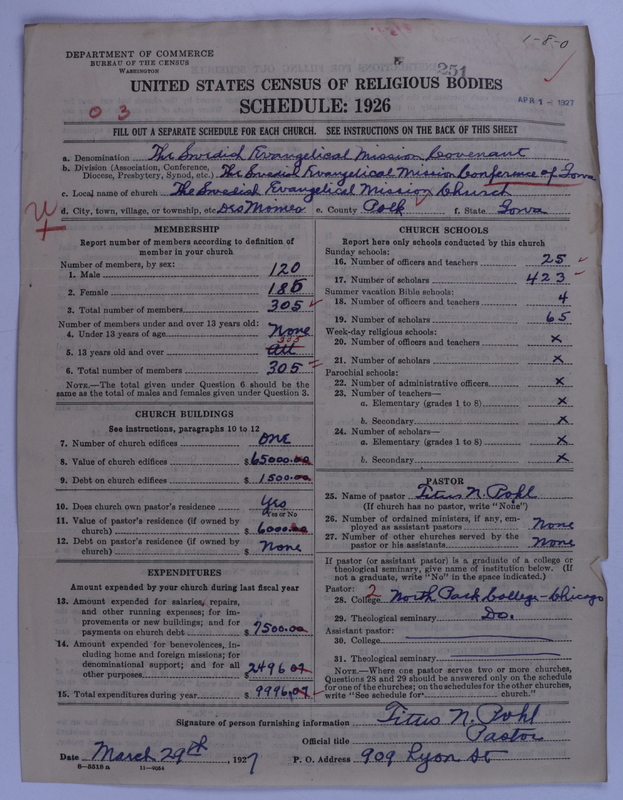 1-8-0
DEPARTMENT OF COMMERCE
BUREAU OF THE CENSUS
WASHINGTON
251
UNITED STATES CENSUS OF RELIGIOUS BODIES
APR 1 - 1927
SCHEDULE: 1926
0 3
FILL OUT A SEPARATE SCHEDULE FOR EACH CHURCH. SEE INSTRUCTIONS ON THE BACK OF THIS SHEET
a. Denomination The Swedish Evangelical Mission Covenant
b. Division (Association, Conference,
Diocese, Presbytery, Synod, etc.) The Swedish Evangelical Mission Conference of Iowa
c. Local name of church The Swedish Evangelical Mission Church
d. City, town, village, or township, etc. Des Moines e. County Polk f. State Iowa
MEMBERSHIP
Report number of members according to definition of
member in your church
Number of members, by sex:
1. Male 120
2. Female 185
3. Total number of members 305
Number of members under and over 13 years old:
4. Under 13 years of age None
305
5. 13 years old and over all
6. Total number of members 305
NOTE.—The total given under Question 6 should be the
same as the total of males and females given under Question 3.
CHURCH BUILDINGS
See instructions, paragraphs 10 to 12
7. Number of church edifices One
8. Value of church edifices $65000.00
9. Debt on church edifices $1500.00
10. Does church own pastor's residence? Yes
Yes or No
11. Value of pastor's residence (if owned by
church) $6000.00
12. Debt on pastor's residence (if owned by
church) $None
EXPENDITURES
Amount expended by your church during last fiscal year
13. Amount expended for salaries, repairs,
and other running expenses; for im-
provements or new buildings; and for
payments on church debt $7500.00
14. Amount expended for benevolences, in-
cluding home and foreign missions; for
denominational support; and for all
other purposes $2496.07
15. Total expenditures during year $9996.07
CHURCH SCHOOLS
Report here only schools conducted by this church
Sunday schools:
16. Number of officers and teachers 25
17. Number of scholars 423
Summer vacation Bible schools:
18. Number of officers and teachers 4
19. Number of scholars 65
Week-day religious schools:
20. Number of officers and teachers x
21. Number of scholars x
Parochial schools:
22. Number of administrative officers x
23. Number of teachers—
a. Elementary (grades 1 to 8) x
b. Secondary x
24. Number of scholars—
a. Elementary (grades 1 to 8) x
b. Secondary x
PASTOR
25. Name of pastor Titus N. Pohl
(If church has no pastor, write "None")
26. Number of ordained ministers, if any, em-
ployed as assistant pastors None
27. Number of other churches served by the
pastor or his assistants None
If pastor (or assistant pastor) is a graduate of a college or
theological seminary, give name of institution below. (If
not a graduate, write "No" in the space indicated.)
Pastor: 2
28. College North Park College - Chicago
29. Theological seminary Do.
Assistant pastor:
30. College
31. Theological seminary
NOTE.—Where one pastor serves two or more churches,
Questions 28 and 29 should be answered only on the schedule
for one of the churches; on the schedules for the other churches,
write "See schedule for church."
Signature of person furnishing information Titus N. Pohl
Official title Pastor
Date March 29th, 1927 P. O. Address 909 Lyon St
8—5518 a 11—9054